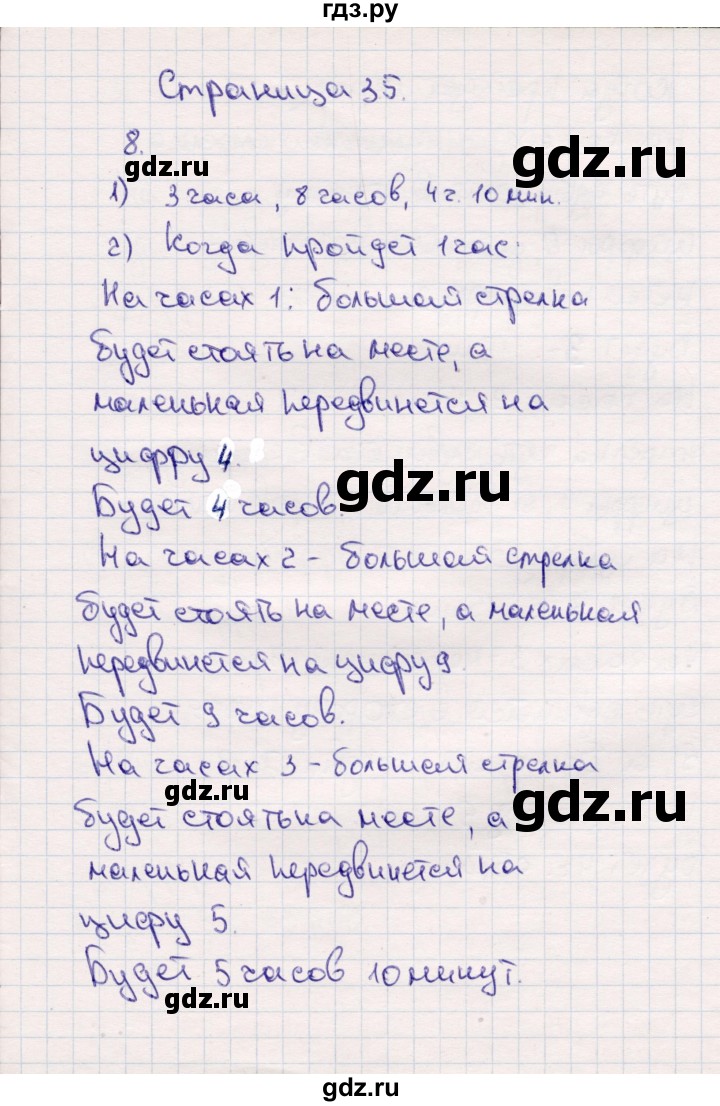 гдз.ру
Страница 35.
8.
gdz.ru
gdz.ru
1) 3 часа, 8 часов, 4 ч. 10 мин.
2) Когда пройдет 1 час:
На часах 1: большая стрелка
будет стоять на месте, а
gdz.ru
маленькая передвинется на
цифру 4.
gdz.ru
Будет 4 часов.
На часах 2 - большая стрелка
будет стоять на месте, а маленькая
передвинется на цифру 9
Будет 9 часов.
На часах 3 - большая стрелка
gdz.ru
gdz.ru
будет стоять на месте, а
маленькая передвинется на
цифру 5.
Будет 5 часов 10 минут.
gdz.ru
gdz.ru